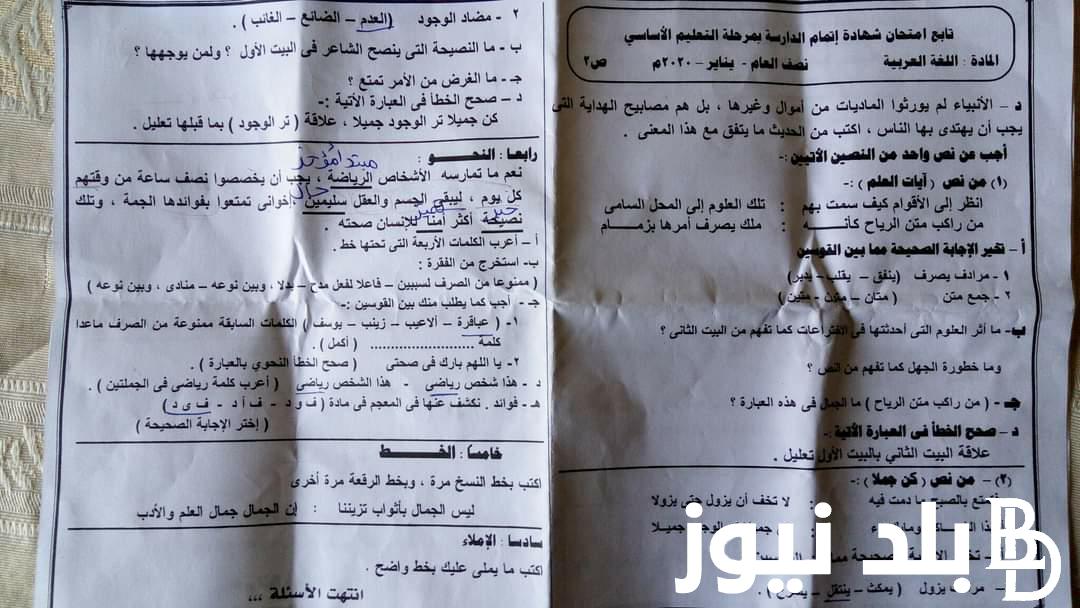 تابع امتحان شهادة إتمام الدارسة بمرحلة التعليم الأساسي
المادة : اللغة العربية نصف العام - يناير - ٢٠٢٠م ص٢
د - الأنبياء لم يورثوا الماديات من أموال وغيرها ، بل هم مصابيح الهداية التى
يجب أن يهتدى بها الناس ، اكتب من الحديث ما يتفق مع هذا المعنى .
أجب عن نص واحد من النصين الأتيين:-
(١) من نص ( آيات العلم ) :-
انظر إلى الأقوام كيف سمت بهم : تلك العلوم إلى المحل السامى
من راكب متن الرياح كأنه : ملك يصرف أمرها بزمام
أ - تخير الإجابة الصحيحة مما بين القوسين
١ - مرادف يصرف (ينفق - يقلب - يدير)
٢ - جمع متن ( متان - متون - متين )
ب- ما أثر العلوم التى أحدثتها فى الاختراعات كما تفهم من البيت الثانى ؟
وما خطورة الجهل كما تفهم من انص ؟
جـ - ( من راكب متن الرياح ) ما الجمال فى هذه العبارة ؟
د - صحح الخطأ فى العبارة الأتية :-
علاقة البيت الثاني بالبيت الأول تعليل .
(٢) - من نص ( كن جملا ) :-
بالصبح ما دمت فيه : لا تخف أن يزول حتى يزولا
وما : الوجود جميلا
الصحيحة
يزول ( يمكث - ينتقل -
٢ - مضاد الوجود (العدم - الضائع - الغائب ) .
ب - ما النصيحة التى ينصح الشاعر فى البيت الأول ؟ ولمن يوجهها ؟
جـ - ما الغرض من الأمر تمتع ؟
د - صحح الخطأ فى العبارة الأتية :-
كن جميلا تر الوجود جميلا ، علاقة ( تر الوجود ) بما قبلها تعليل .
رابعا : النحو :
مبتدأ مؤخر
نعم ما تمارسه الأشخاص الرياضة ، يجب أن يخصصوا نصف ساعة من وقتهم
حال
كل يوم ، ليبقى الجسم والعقل سليمين إخوانى تمتعوا بفوائدها الجمة ، وتلك
خبر تمييز
نصيحة أكثر أمنا للإنسان صحته .
أ - أعرب الكلمات الأربعة التى تحتها خط .
ب- استخرج من الفقرة :
( ممنوعا من الصرف لسببين - فاعلا لفعل مدح - بدلا ، وبين نوعه - منادى ، وبين نوعه )
جـ - أجب كما يطلب منك بين القوسين :-
١- ( عباقرة - ألاعيب - زينب - يوسف ) الكلمات السابقة ممنوعة من الصرف ماعدا
كلمة .................... ( أكمل ) .
٢- يا اللهم بارك فى صحتى ( صحح الخطأ النحوي بالعبارة ) .
د - هذا شخص رياضى - هذا الشخص رياضى ( أعرب كلمة رياضى فى الجملتين ) .
هـ - فوائد . نكشف عنها فى المعجم فى مادة ( ف و د - ف أ د - ف ى د )
( إختر الإجابة الصحيحة )
خامسا : الخط
اكتب بخط النسخ مرة ، وبخط الرقعة مرة أخرى
ليس الجمال بأثواب تزيننا : إن الجمال جمال العلم والأدب
سادسا : الإملاء
اكتب ما يملى عليك بخط واضح .
انتهت الأسئلة ،،،
بلد نيوز